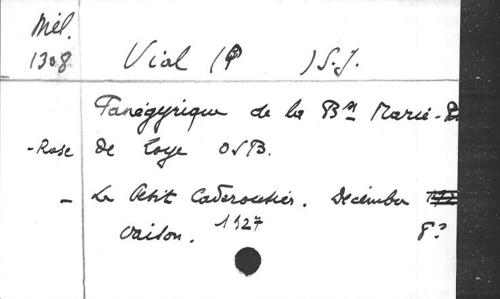 Mél.
1308
Vial (P )S.J.
Panégyrique de la Bse Marie-
-Rose de Loye OSB.
- Le Petit Caderoussier. Décembre
Vaison. 1927 8°